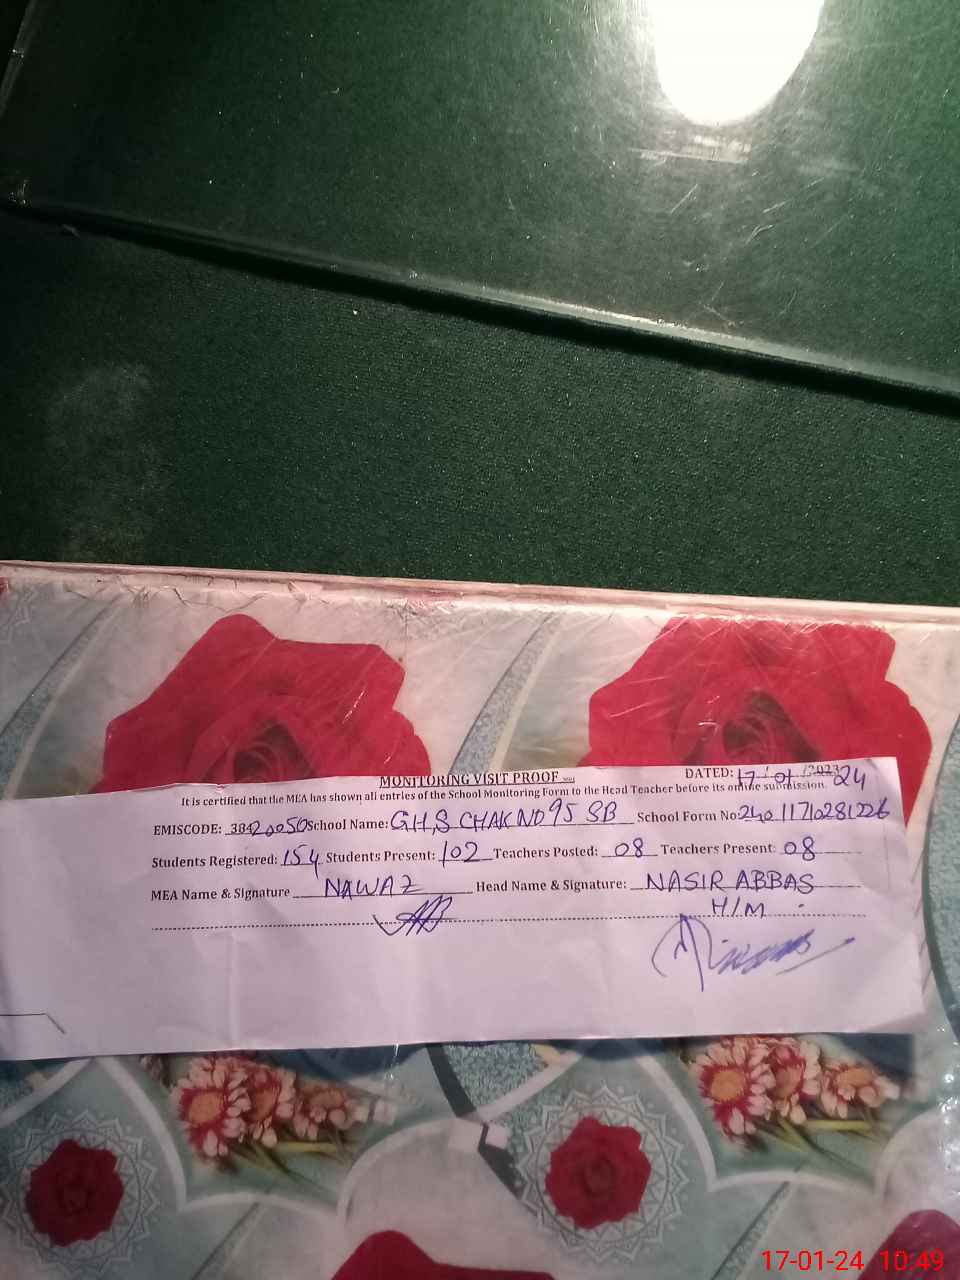 MONITORING VISIT PROOF
DATED: 17/01/2023 24
It is certified that the MEA has shown all entries of the School Monitoring Form to the Head Teacher before its online submission.
EMISCODE: 38420050 School Name: G.H.S CHAK NO 95 SB School Form No: 24011710281226
Students Registered: 154 Students Present: 102 Teachers Posted: 08 Teachers Present: 08
MEA Name & Signature NAWAZ Head Name & Signature: NASIR ABBAS
H/M
17-01-24 10:49